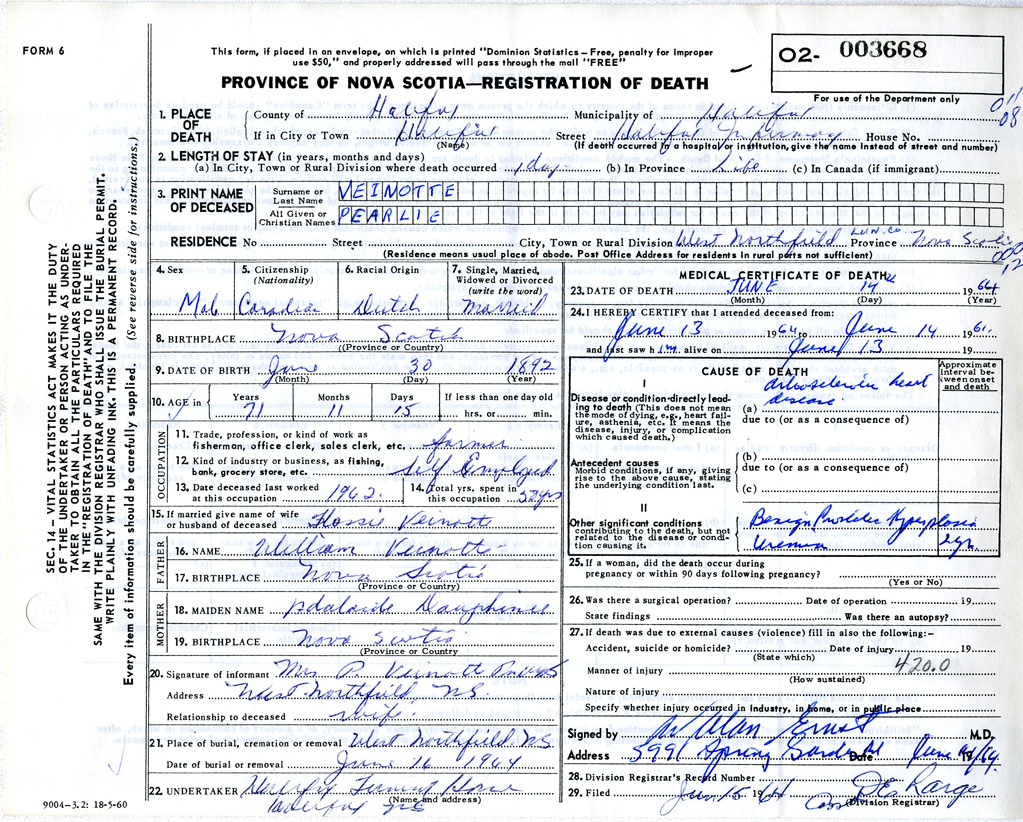 FORM 6
This form, if placed in an envelope, on which is printed "Dominion Statistics – Free, penalty for improper
use $50," and properly addressed will pass through the mail "FREE"
PROVINCE OF NOVA SCOTIA—REGISTRATION OF DEATH
O2- 003668
For use of the Department only
011
08
1. PLACE OF DEATH
County of Halifax Municipality of Halifax
If in City or Town Halifax Street Halifax Infirmary House No.
(Name) (If death occurred in a hospital or institution, give the name instead of street and number)
2. LENGTH OF STAY (in years, months and days)
(a) In City, Town or Rural Division where death occurred 1 day (b) In Province Life (c) In Canada (if immigrant)
3. PRINT NAME OF DECEASED
Surname or Last Name VEINOTTE
All Given or Christian Names PEARLIE
RESIDENCE No Street City, Town or Rural Division West Northfield Lun. Co. Province Nova Scotia
(Residence means usual place of abode. Post Office Address for residents in rural parts not sufficient)
12
SEC. 14 – VITAL STATISTICS ACT MAKES IT THE DUTY
OF THE UNDERTAKER OR PERSON ACTING AS UNDER-
TAKER TO OBTAIN ALL THE PARTICULARS REQUIRED
IN THE "REGISTRATION OF DEATH" AND TO FILE THE
SAME WITH THE DIVISION REGISTRAR WHO SHALL ISSUE THE BURIAL PERMIT.
WRITE PLAINLY WITH UNFADING INK. THIS IS A PERMANENT RECORD.
Every item of information should be carefully supplied. (See reverse side for instructions.)
4. Sex 5. Citizenship (Nationality) 6. Racial Origin 7. Single, Married, Widowed or Divorced (write the word)
Male Canadian Dutch Married
8. BIRTHPLACE Nova Scotia
(Province or Country)
9. DATE OF BIRTH June 30 1892
(Month) (Day) (Year)
10. AGE in Years Months Days If less than one day old
71 11 15 hrs. or min.
OCCUPATION
11. Trade, profession, or kind of work as
fisherman, office clerk, sales clerk, etc. farmer
12. Kind of industry or business, as fishing,
bank, grocery store, etc. Self Employed
13. Date deceased last worked at this occupation 1962. 14. Total yrs. spent in this occupation 52 yrs
15. If married give name of wife
or husband of deceased Flossie Veinotte
FATHER
16. NAME William Veinotte
17. BIRTHPLACE Nova Scotia
(Province or Country)
MOTHER
18. MAIDEN NAME Adelaide Dauphinee
19. BIRTHPLACE Nova Scotia
(Province or Country)
20. Signature of informant Mrs P. Veinotte
Address West Northfield, NS
Relationship to deceased wife.
21. Place of burial, cremation or removal West Northfield, NS
Date of burial or removal June 16 1964
22. UNDERTAKER
(Name and address)
9004–3.2: 18-5-60
MEDICAL CERTIFICATE OF DEATH
23. DATE OF DEATH JUNE 14th 1964
(Month) (Day) (Year)
24. I HEREBY CERTIFY that I attended deceased from:
June 13 1964 June 14 196
and last saw him alive on June 13 19
CAUSE OF DEATH
Approximate interval between onset and death
I
Disease or condition directly leading to death (This does not mean the mode of dying, e.g., heart failure, asthenia, etc. It means the disease, injury, or complication which caused death.)
(a) heart disease
due to (or as a consequence of)
Antecedent causes
Morbid conditions, if any, giving rise to the above cause, stating the underlying condition last.
(b)
due to (or as a consequence of)
(c)
II
Other significant conditions
contributing to the death, but not related to the disease or condition causing it.
Benign Prostatic Hyperplasia
Uremia
25. If a woman, did the death occur during
pregnancy or within 90 days following pregnancy?
(Yes or No)
26. Was there a surgical operation? Date of operation 19
State findings Was there an autopsy?
27. If death was due to external causes (violence) fill in also the following:–
Accident, suicide or homicide? Date of injury 19
(State which)
Manner of injury 420.0
(How sustained)
Nature of injury
Specify whether injury occurred in industry, in home, or in public place
Signed by W Alan Ernst M.D.
Address 5991 Spring Garden Rd Date June /64
28. Division Registrar's Record Number
29. Filed Jun 15 1964
(Division Registrar)